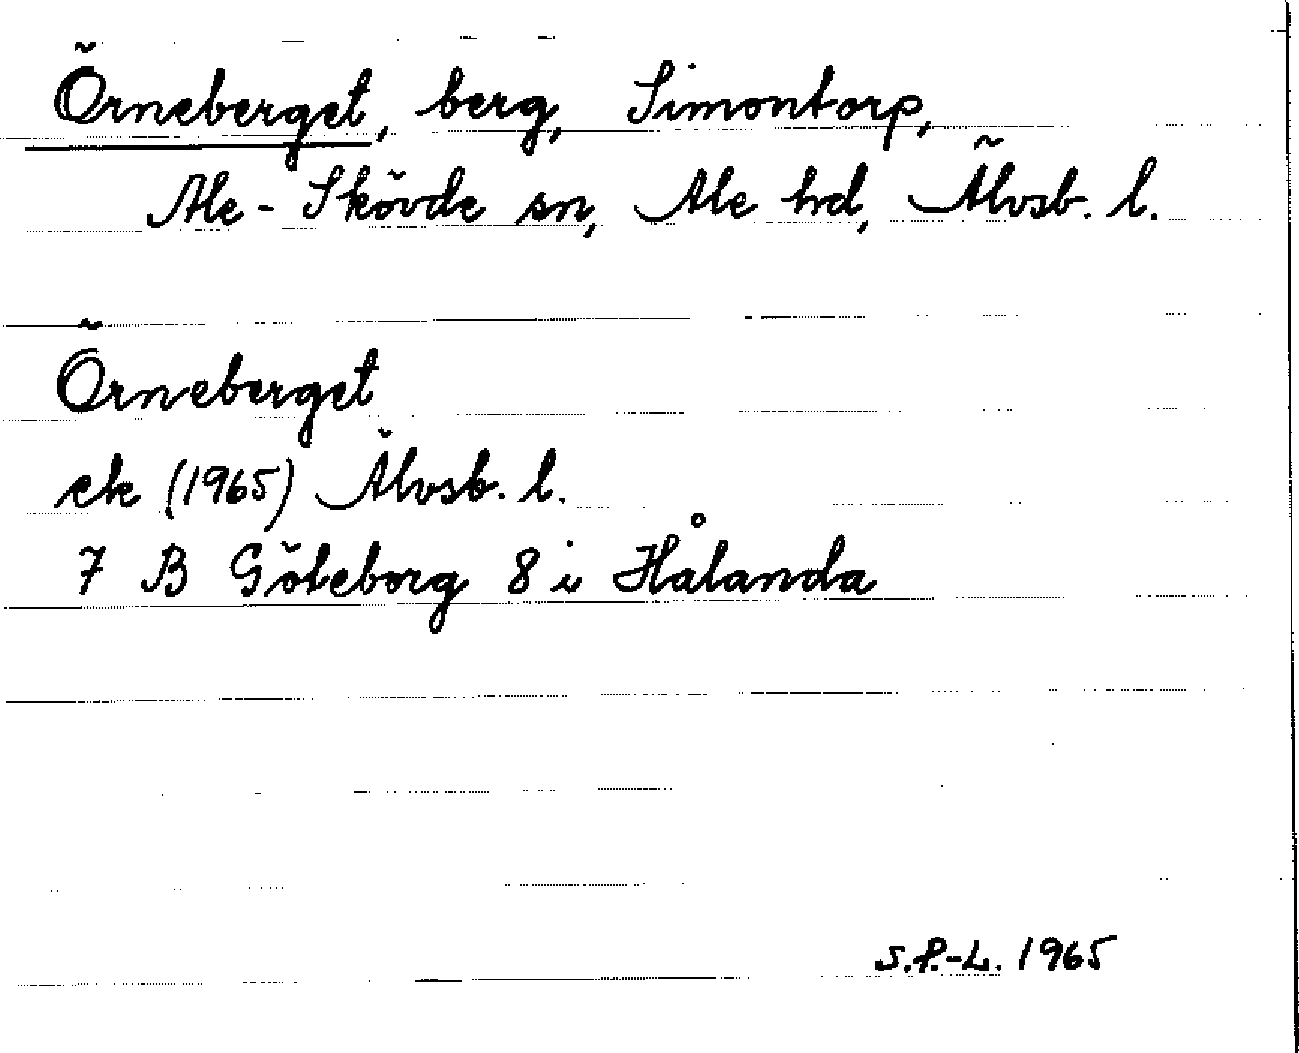 Örneberget, berg, Simontorp,
Ale-Skövde sn, Ale hd, Älvsb. l.
Örneberget
ek (1965) Älvsb. l.
7 B Göteborg 8 i Hålanda
S.P.-L. 1965